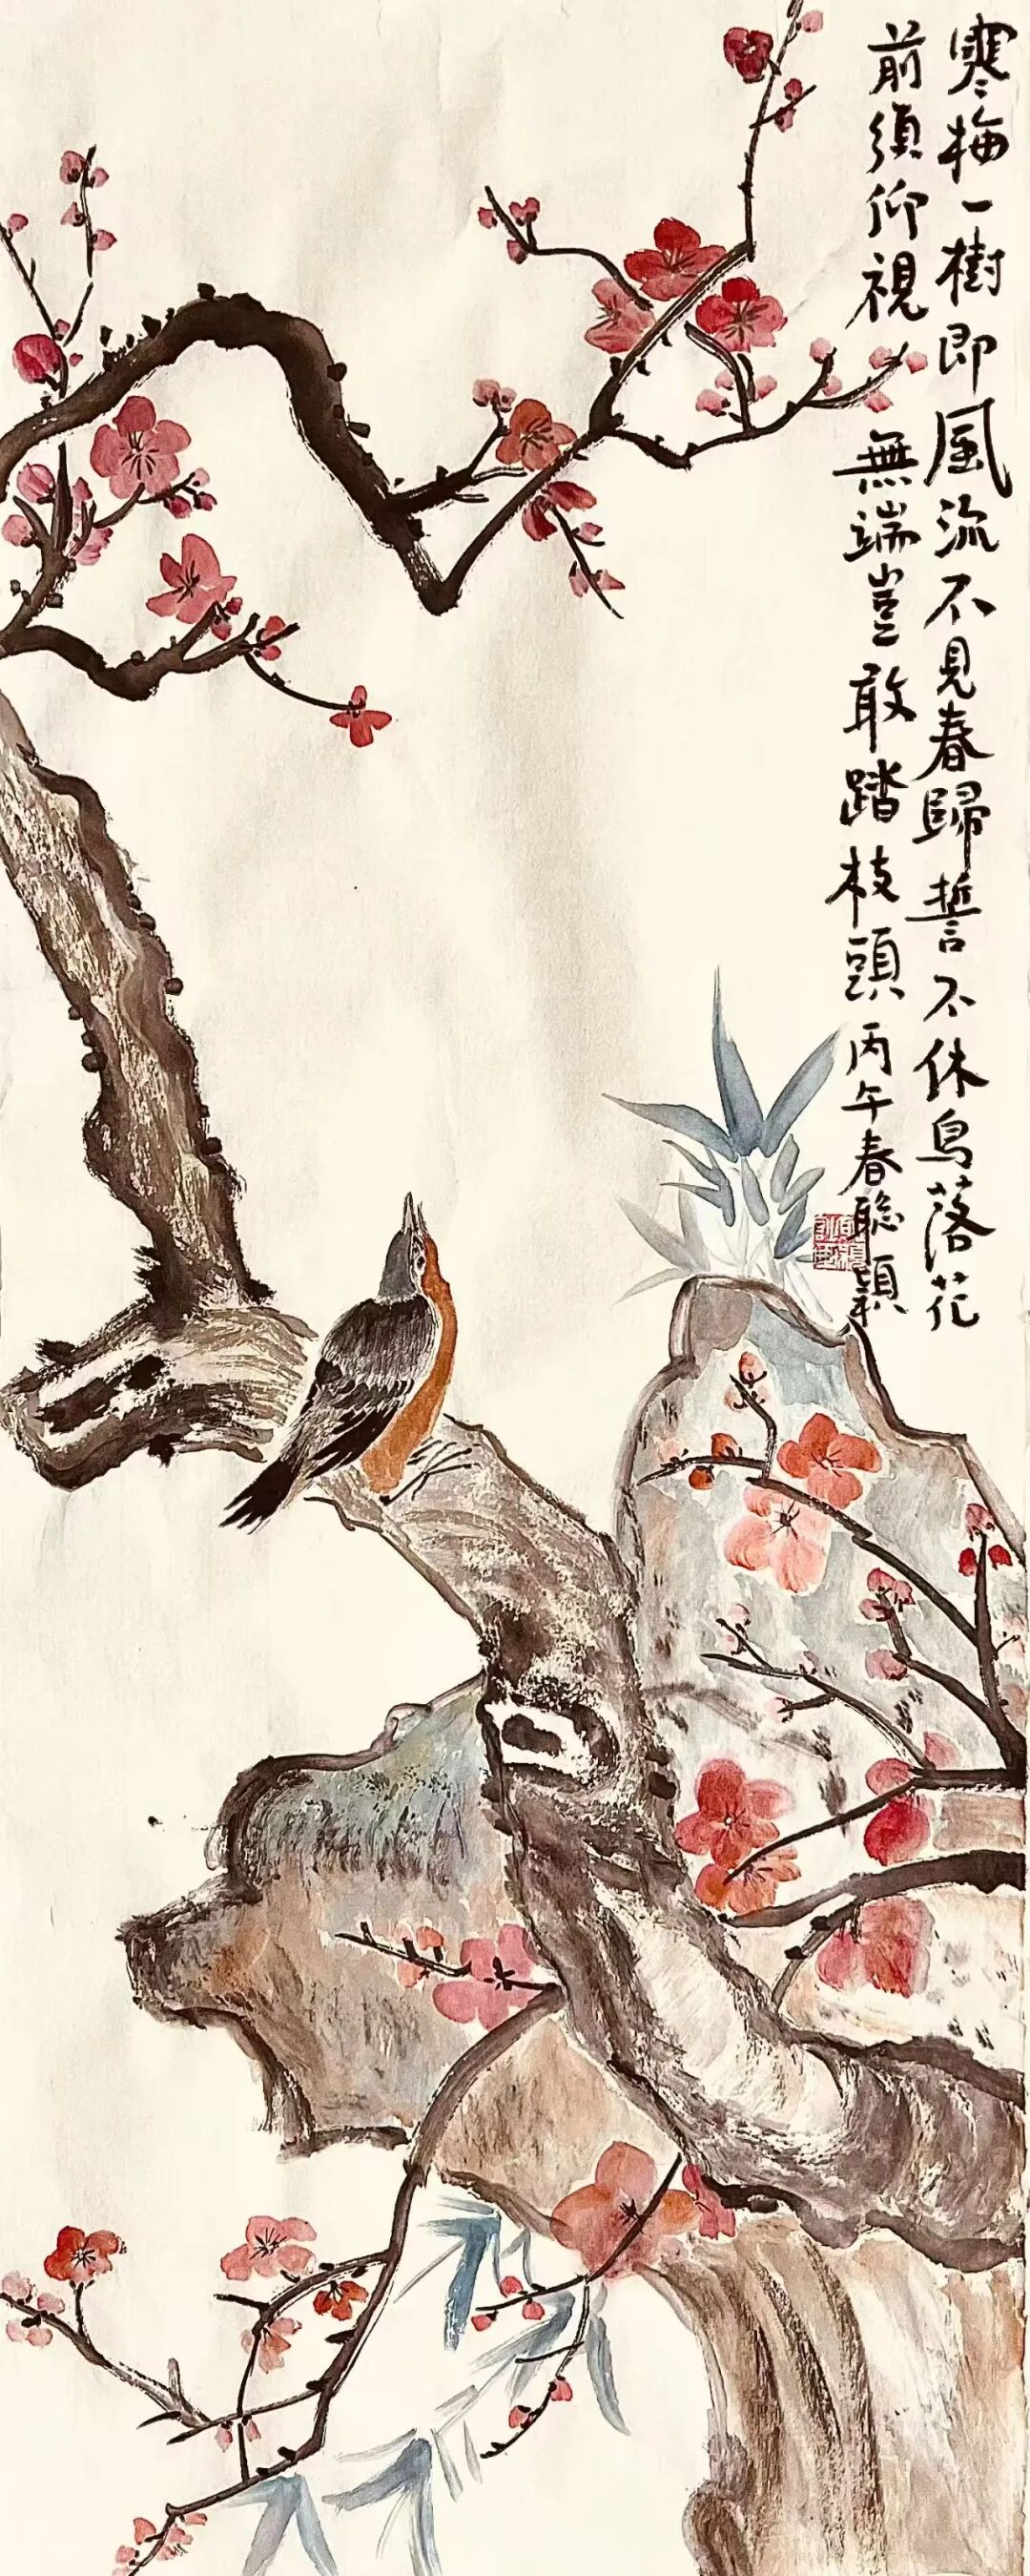 寒梅一樹即風流不見春歸誓不休鳥落花
前須仰視無端豈敢踏枝頭丙午春聪穎